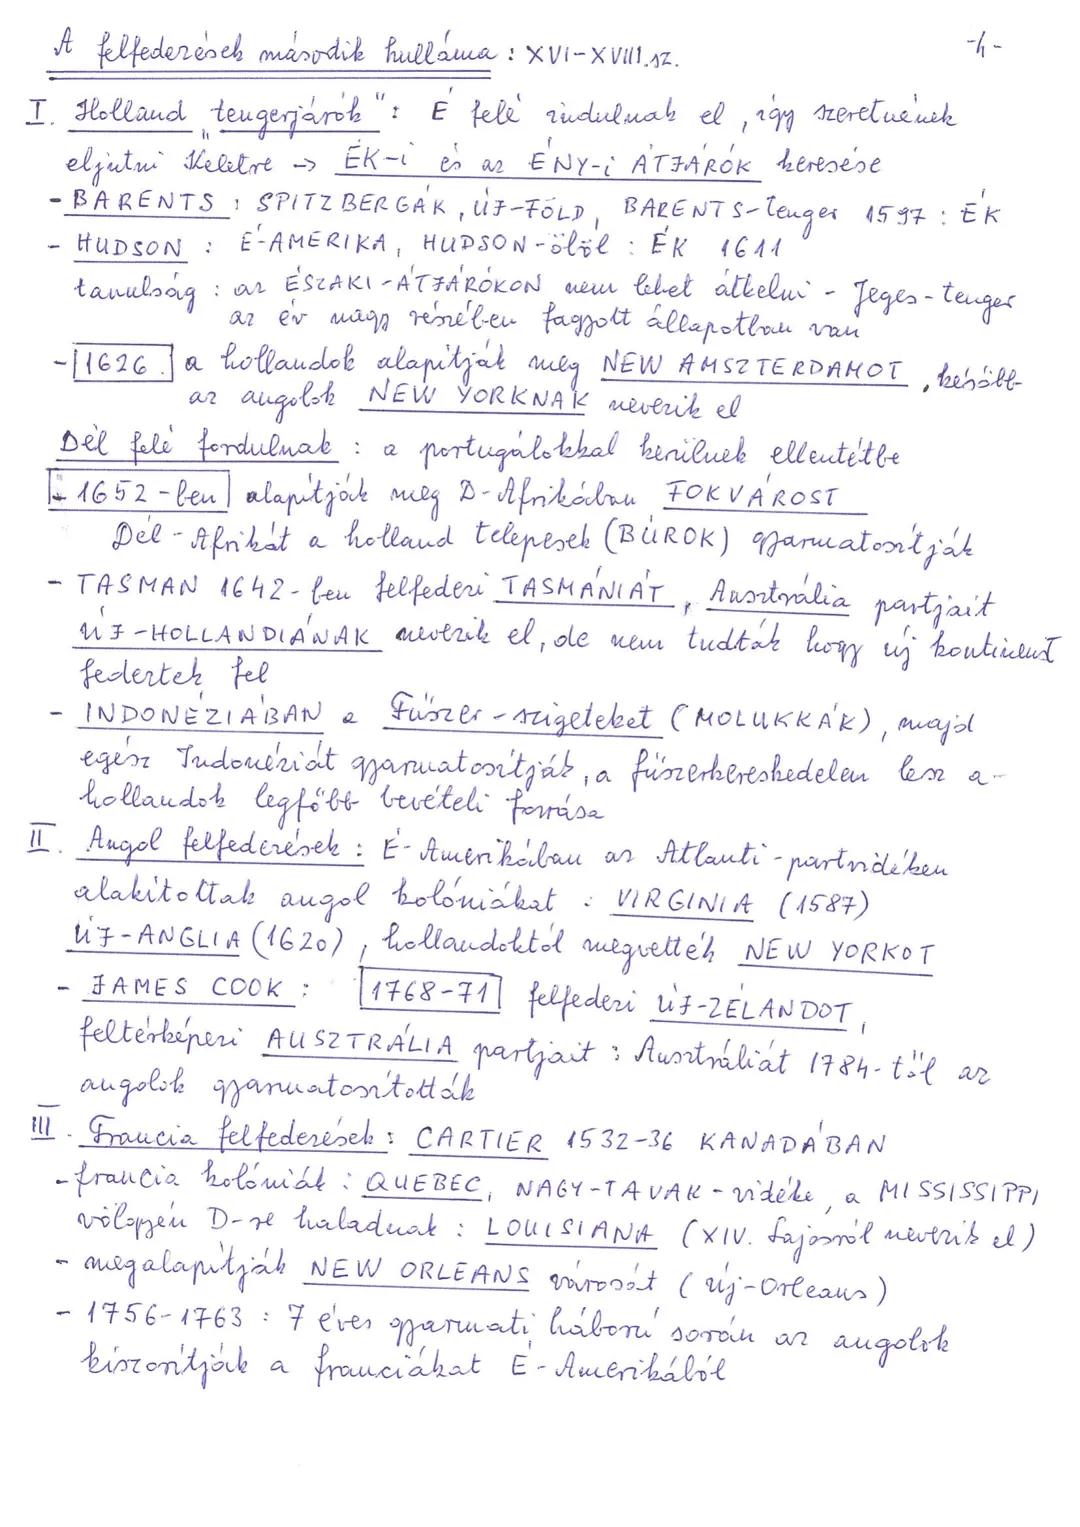 A felfedezések második hulláma : XVI-XVIII.sz.
-4-
I. Holland „tengerjárók": É felé indulnak el, így szeretnének
eljutni Keletre → ÉK-i és az ÉNY-i ÁTJÁRÓK keresése
- BARENTS : SPITZBERGÁK, ÚJ-FÖLD, BARENTS-tenger 1597 : ÉK
- HUDSON : É-AMERIKA, HUDSON-öböl : ÉK 1611
tanulság : az ÉSZAKI-ÁTJÁRÓKON nem lehet átkelni - Jeges-tenger
az év nagy részében fagyott állapotban van
- 1626. a hollandok alapítják meg NEW AMSZTERDAMOT, később
az angolok NEW YORKNAK nevezik el
Dél felé fordulnak : a portugálokkal kerülnek ellentétbe
- 1652-ben alapítják meg D-Afrikában FOKVÁROST
Dél-Afrikát a holland telepesek (BÚROK) gyarmatosítják
- TASMAN 1642-ben felfedezi TASMÁNIÁT, Ausztrália partjait
ÚJ-HOLLANDIÁNAK nevezik el, de nem tudták hogy új kontinenst
fedeztek fel
- INDONÉZIÁBAN a Fűszer-szigeteket (MOLUKKÁK), majd
egész Indonéziát gyarmatosítják, a fűszerkereskedelem lesz a
hollandok legfőbb bevételi forrása
II. Angol felfedezések : É-Amerikában az Atlanti-partvidéken
alakítottak angol kolóniákat : VIRGINIA (1587)
ÚJ-ANGLIA (1620), hollandoktól megvették NEW YORKOT
- JAMES COOK : 1768-71 felfedezi ÚJ-ZÉLANDOT,
feltérképezi AUSZTRÁLIA partjait : Ausztráliát 1784-től az
angolok gyarmatosították
III. Francia felfedezések : CARTIER 1532-36 KANADÁBAN
- francia kolóniák : QUEBEC, NAGY-TAVAK-vidéke, a MISSISSIPPI
völgyén D-re haladnak : LOUISIANA (XIV. Lajosról nevezik el)
- megalapítják NEW ORLEANS városát (Új-Orleans)
- 1756-1763 : 7 éves gyarmati háború során az angolok
kiszorítják a franciákat É-Amerikából